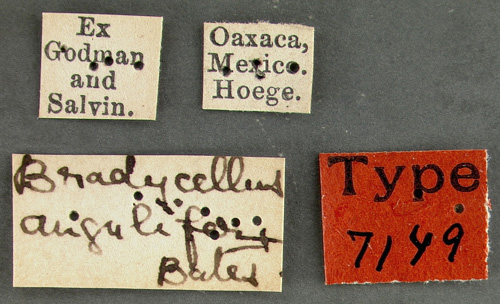 Ex
Godman
and
Salvin.
Oaxaca,
Mexico.
Hoege.
Bradycellus
Bates.
Type
7149